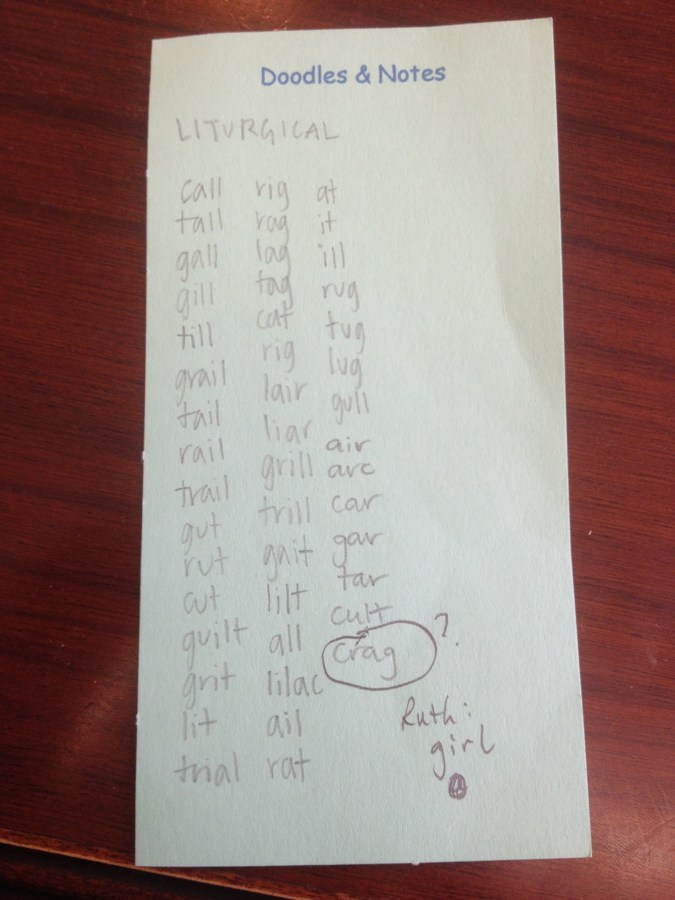 Doodles & Notes
LITURGICAL
call rig at
tall rag it
gall lag ill
gill tag rug
till cat tug
grail rig lug
tail lair gull
rail liar air
trail grill arc
gut trill car
rut gait gar
cut lilt tar
guilt all cult
grit lilac crag ?
lit ail
trial rat
Ruth:
girl